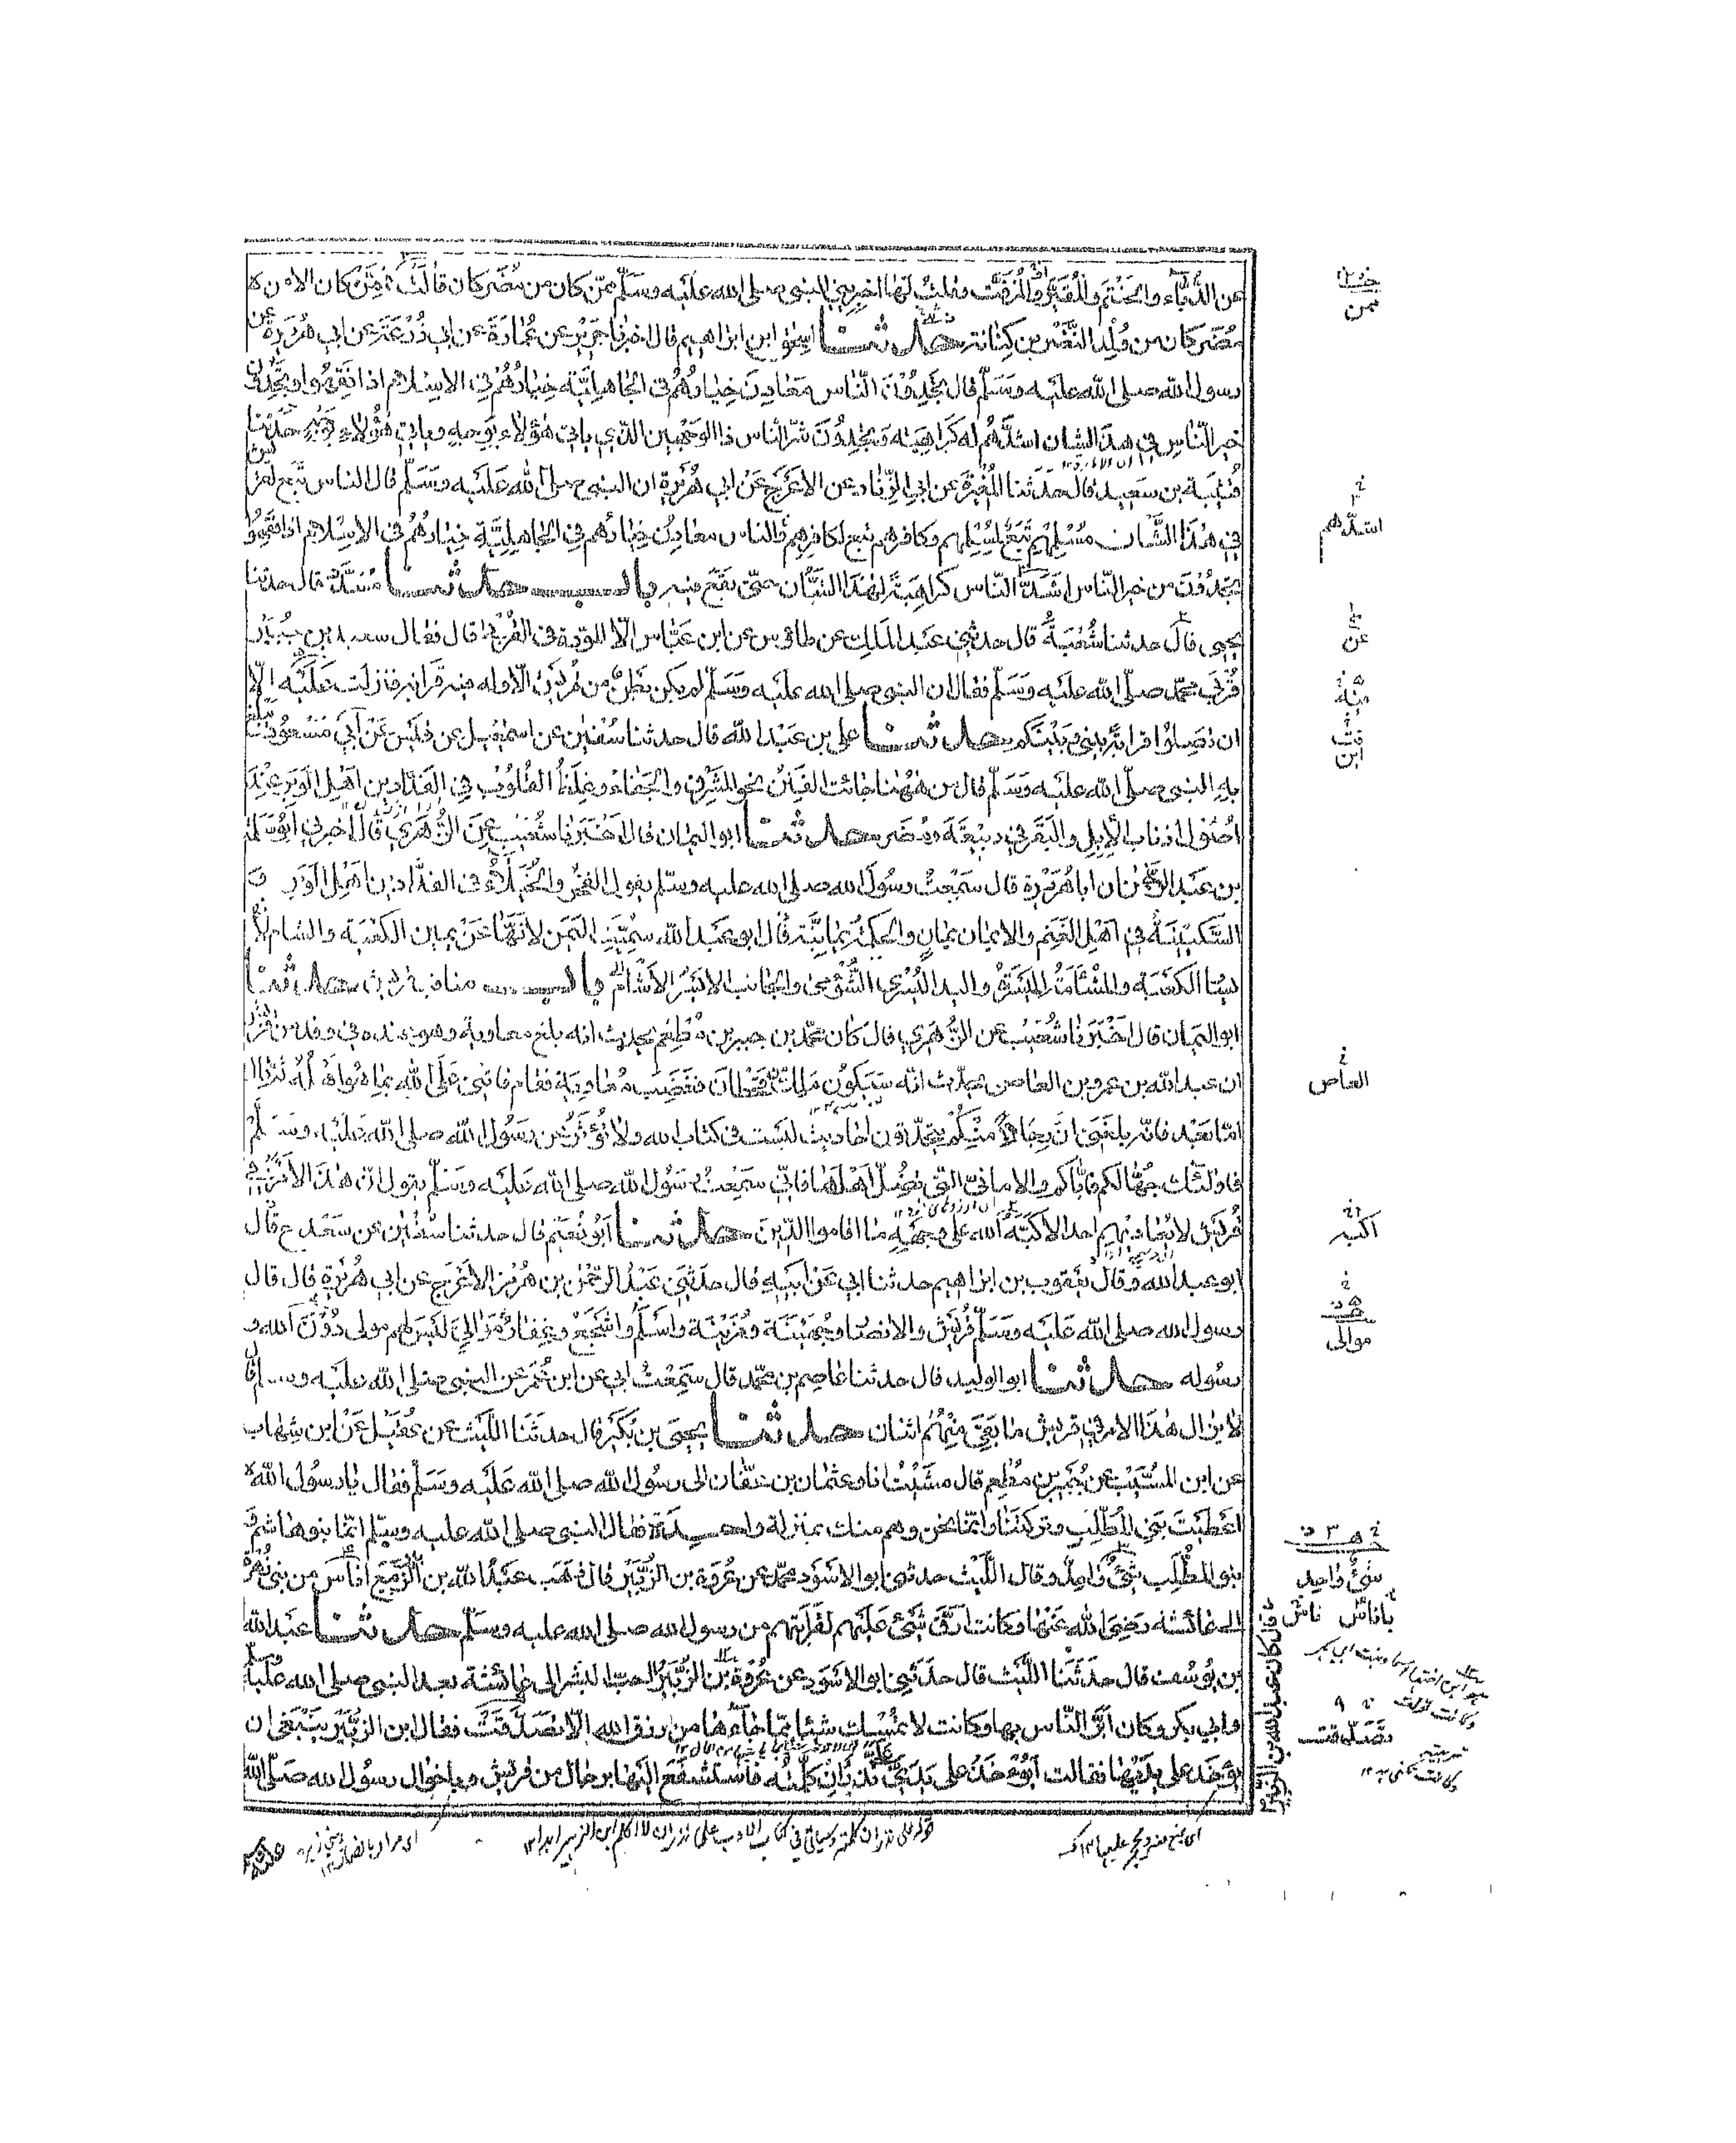 عن الدُّبَّاء والحَنْتَم والمُقَيَّر والمُزَفَّت وقلتُ لها اخبريني النبي صلى الله عليه وسلم ممّن كان من مُضَر كان قالت فممّن كان الا من
مُضَر كان من وُلْد النَّضْر بن كِنانة حدثنا اسحٰق ابن ابراهيم قال اخبرنا جرير عن عُمارة عن ابي زُرْعة عن ابي هُرَيرة عن
رسول الله صلى الله عليه وسلم قال تجدون النّاس معادِنَ خِيارُهُمْ في الجاهليّة خِيارُهُمْ في الاسلام اذا فَقِهُوا وتَجِدُون
خير النّاس في هذا الشان اشدَّهُم له كراهيةً وتجدُونَ شرّ الناس ذا الوجهين الذي ياتي هٰؤلاء بوجهٍ وياتي هٰؤلاء بوجهٍ حدثنا
قُتَيبة بن سعيد قال حدثنا المُغيرة عن ابي الزِّناد عن الاعرج عن ابي هُرَيرة ان النبي صلى الله عليه وسلم قال الناس تَبَع لقريش
في هٰذا الشّان مُسْلِمُهُم تَبَعٌ لمُسْلِمِهم وكافرهم تبع لكافرهم والناس معادِن خِيارُهم في الجاهليّة خِيارُهُمْ في الاسلام اذا فَقِهُوا
تجدُونَ من خير النّاس اشدَّ النّاس كراهيةً لهٰذا الشّان حتى يقع فيه باب حدثنا مُسَدَّد قال حدثنا
يحيى قال حدثنا شُعْبَةُ قال حدثني عبد الملك عن طاوس عن ابن عبّاس الّا المودة في القُرْبىٰ قال فقال سعيد بن جُبَير
قُرْبىٰ محمّد صلّى الله عليه وسلّم فقال ان النبي صلى الله عليه وسلّم لم يكن بطنٌ من قُرَيش الّا وله فيه قرابة فنزلت عليه الّا
ان تصلوا قرابةً بيني وبينكم حدثنا علي بن عبد الله قال حدثنا سُفْيٰن عن اسمٰعيل عن قَيس عن ابي مسعود يبلغ
به النبي صلّى الله عليه وسلّم قال من هٰهُنا جائت الفِتَنُ نحو المشرق والجفاء وغِلَظُ القلوب في الفَدّادين اهل الوَبَر عِنْدَ
اُصُول اذناب الابل والبقر في ربيعة ومُضَر حدثنا ابو اليمان قال اخبرنا شُعَيب عن الزُّهْري قال اخبرني ابو سلمة
بن عبد الرحمٰن ان ابا هُرَيرة قال سمعتُ رسول الله صلى الله عليه وسلّم يقول الفَخْر والخُيَلاءُ في الفدّادين اهل الوَبَر و
السَّكينَةُ في اهل الغنم والايمان يمانٍ والحكمة يمانيّة قال ابو عبد الله سُمّيَتِ اليمن لانّها عن يمين الكعبة والشام لانها
عن يسار الكعبة والمشئمة الميسرة واليد اليُسْرى الشُّؤْمىٰ والجانب الايسر الاشأم باب مناقب قريش حدثنا
ابو اليمان قال اخبرنا شُعَيب عن الزُّهْري قال كان محمّد بن جبير بن مُطْعِم يحدث انه بلغ معاوية وهو عنده في وفد من قريش
ان عبد الله بن عمرو بن العاص يحدّث انه سيكون مَلِك من قحطان فغضب مُعاوية فقام فاثنىٰ على الله بما هو اهله ثم قال
امّا بعد فانه بلغني ان رجالا منكم يتحدّثون احاديث ليست في كتاب الله ولا تُؤْثَر عن رسول الله صلى الله عليه وسلّم
فاولٰئك جُهّالكم فايّاكم والاماني التي تُضِلّ اهلها فاني سمعتُ رسول الله صلى الله عليه وسلّم يقول ان هٰذا الامر في
قُرَيش لا يُعاديهم احد الا كبّه الله على وجهه ما اقاموا الدّين حدثنا ابو نُعَيم قال حدثنا سُفْيٰن عن سعد ح قال
ابو عبد الله وقال يعقوب بن ابراهيم حدثنا ابي عن ابيه قال حدثني عبد الرحمٰن بن هُرْمُز الاعرج عن ابي هُرَيرة قال قال
رسول الله صلى الله عليه وسلّم قُرَيش والانصار وجُهَينة ومُزَينة واسلم واشجع وغِفار مواليَّ ليس لهم مولى دُونَ الله و
رسوله حدثنا ابو الوليد قال حدثنا عاصم بن محمّد قال سمعتُ ابي عن ابن عمر عن النبي صلى الله عليه وسلم قال
لا يزال هٰذا الامر في قريش ما بقي منهم اثنان حدثنا يحيى بن بُكَير قال حدثنا اللّيث عن عُقَيل عن ابن شِهاب
عن ابن المُسَيّب عن جُبَير بن مُطْعِم قال مشيتُ انا وعثمان بن عفّان الى رسول الله صلى الله عليه وسلّم فقال يا رسول الله
اعطيتَ بني المُطَّلِب وتركتنا وانّما نحن وهم منك بمنزلة واحدة فقال النبي صلى الله عليه وسلّم انّما بنو هاشم و
بنو المُطَّلِب شئٌ واحدٌ وقال اللّيث حدثني ابو الاسود محمّد عن عُروة بن الزُّبَير قال ذهب عبد الله بن الزبير مع اُناس من بني زُهْرة
الى عائشة رضي الله عنها وكانت ارقّ شئ عليهم لقرابتهم من رسول الله صلى الله عليه وسلّم حدثنا عبد الله
بن يوسف قال حدثنا اللّيث قال حدثني ابو الاسود عن عُروة بن الزُّبَير احبّ البشر الى عائشة بعد النبي صلى الله عليه وسلم
وابي بكر وكان ابرّ النّاس بها وكانت لا تمسك شيئا ممّا جاءها من رزق الله الّا تصدّقت فقال ابن الزُّبَير ينبغي ان
يؤخذ على يديها فقالت ايُؤْخَذُ على يديَّ عليّ نذر ان كلّمته فاستشفع اليها برجال من قريش وباخوال رسول الله صلى الله
ممن
اشدّهم
عن
ابن
العاص
اكبه
موالى
شئ واحد
ناس
تصدقت
قال كان عبد الله بن الزبير